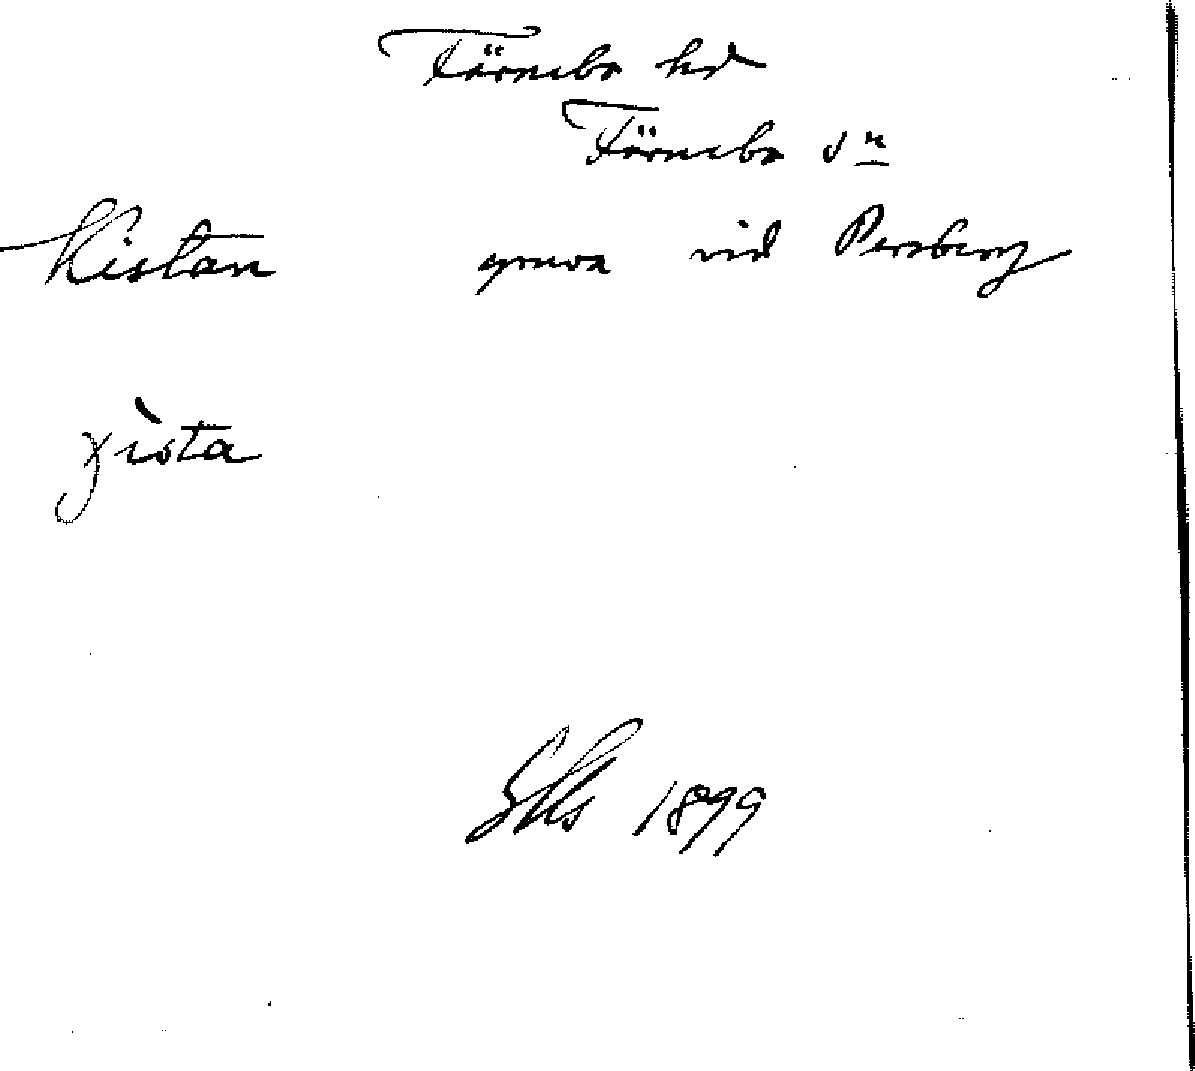 Färnebo hd
Färnebo sn
Kistan gruva vid Persberg
χista
1899